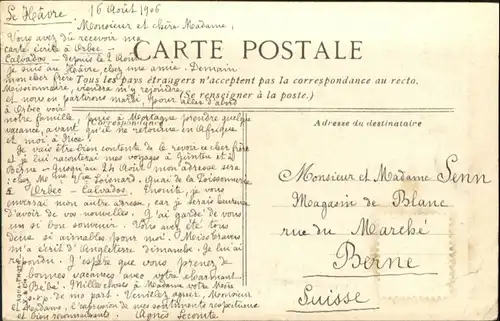 Le Hâvre 16 Août 1906
Monsieur et chère Madame,
Vous avez dû recevoir ma
carte écrite à Orbec -
Calvados - depuis le 2 Août
je suis au Hâvre, chez une amie. Demain
mon cher frère
Missionnaire, viendra m'y rejoindre
et nous en partirons mardi, pour aller d'abord
CARTE POSTALE
Tous les pays étrangers n'acceptent pas la correspondance au recto.
(Se renseigner à la poste.)
Correspondance
Adresse du destinataire
à Orbec voir
notre famille, puis à Mortagne prendre quelque
vacance, avant qu'il ne retourne en Afrique
et moi à Nice.
Je vais être bien contente de le revoir ce cher frère
et je lui raconterai mes voyages à et à
Berne - Jusqu'au 24 Août mon adresse sera
chez Mme Loisnard. Quai de la Poissonnerie
à Orbec - Calvados. Ensuite, je vous
enverrai mon autre adresse, car je serai heureuse
d'avoir de vos nouvelles. J'ai gardé de vous
un si bon souvenir. Vous avez été tous
deux si aimables pour moi. Miss
m'a écrit d'Angleterre dimanche. Je lui ai
répondu. J'espère que vous prenez de
bonnes vacances avec votre charmant
"Bébé". Mille choses à Madame votre Mère
s.v.p. de ma part. Veuillez agréer, Monsieur
et Madame, l'expression de mes sentiments respectueux
et bien reconnaissants. Agnès Lecomte.
Monsieur et Madame Senn
Magasin de Blanc
rue du Marché
Berne
Suisse